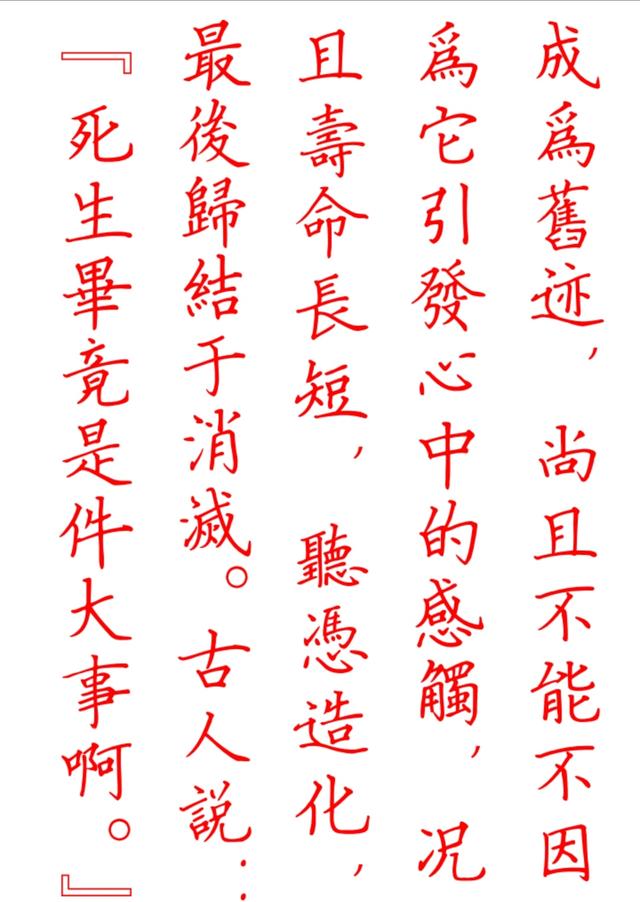 成爲舊迹，尚且不能不因
爲它引發心中的感觸，况
且壽命長短，聽憑造化，
最後歸結于消滅。古人説：
『死生畢竟是件大事啊。』